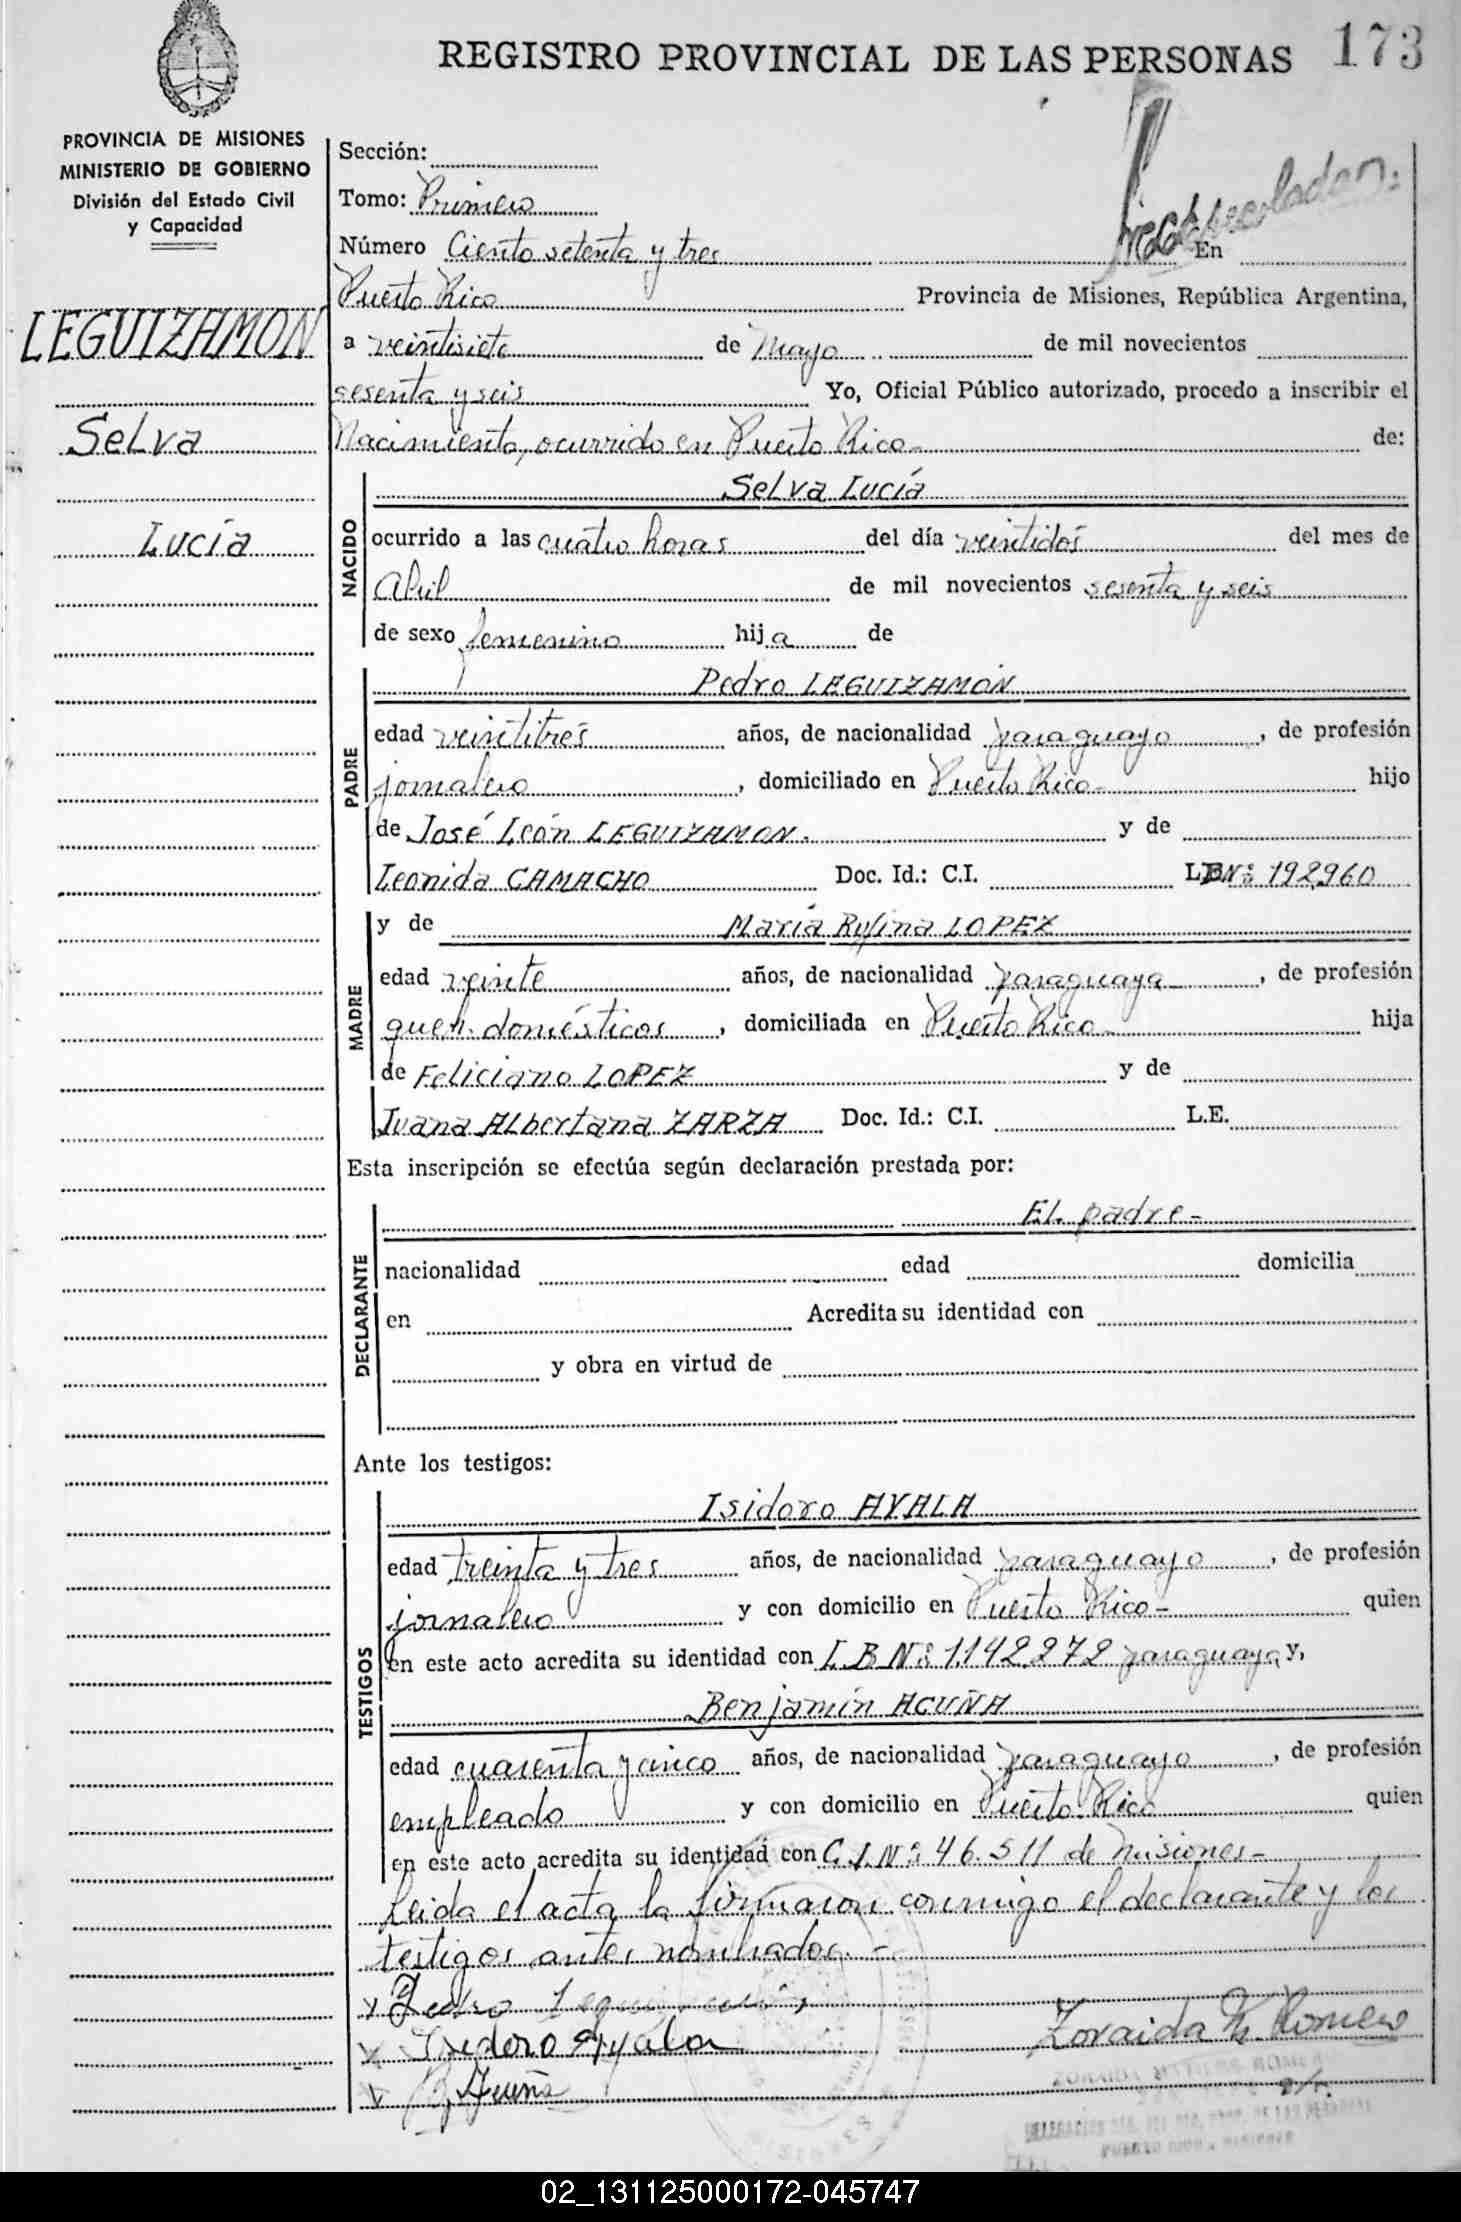 REGISTRO PROVINCIAL DE LAS PERSONAS 173
PROVINCIA DE MISIONES
MINISTERIO DE GOBIERNO
División del Estado Civil
y Capacidad
LEGUIZAMON
Selva
Lucía
Sección:
Tomo: Primero
Número Ciento setenta y tres En
Puerto Rico Provincia de Misiones, República Argentina,
a veintisiete de Mayo de mil novecientos
sesenta y seis Yo, Oficial Público autorizado, procedo a inscribir el
Nacimiento, ocurrido en Puerto Rico- de:
NACIDO
Selva Lucía
ocurrido a las cuatro horas del día veintidós del mes de
Abril de mil novecientos sesenta y seis
de sexo femenino hija de
PADRE
Pedro LEGUIZAMÓN
edad veintitrés años, de nacionalidad paraguayo, de profesión
jornalero, domiciliado en Puerto Rico- hijo
de José León LEGUIZAMON. y de
Leonida CAMACHO Doc. Id.: C.I. LBNº 192960
MADRE
y de María Rufina LOPEZ
edad veinte años, de nacionalidad paraguaya, de profesión
queh. domésticos, domiciliada en Puerto Rico- hija
de Feliciano LOPEZ y de
Juana Albertana ZARZA Doc. Id.: C.I. L.E.
Esta inscripción se efectúa según declaración prestada por:
DECLARANTE
El padre-
nacionalidad edad domicilia
en Acredita su identidad con
y obra en virtud de
Ante los testigos:
TESTIGOS
Isidoro AYALA
edad treinta y tres años, de nacionalidad paraguayo, de profesión
jornalero y con domicilio en Puerto Rico- quien
en este acto acredita su identidad con L B Nº 1.142272 paraguaya y,
Benjamín ACUÑA
edad cuarenta y cinco años, de nacionalidad paraguayo, de profesión
empleado y con domicilio en Puerto Rico quien
en este acto acredita su identidad con C.I.Nº 46.511 de Misiones-
Leida el acta la firmaron conmigo el declarante y los
testigos antes nombrados.-
x Pedro
x Isidoro Ayala
x B Acuña
Zoraida M. Romero
02_131125000172-045747